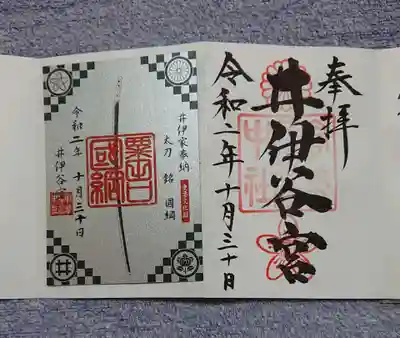 奉拝
井伊谷宮
中社
令和二年十月三十日
井伊家奉納
太刀 銘 國綱
重要文化財
粟田口
國綱
令和二年 十月三十日
井伊谷宮